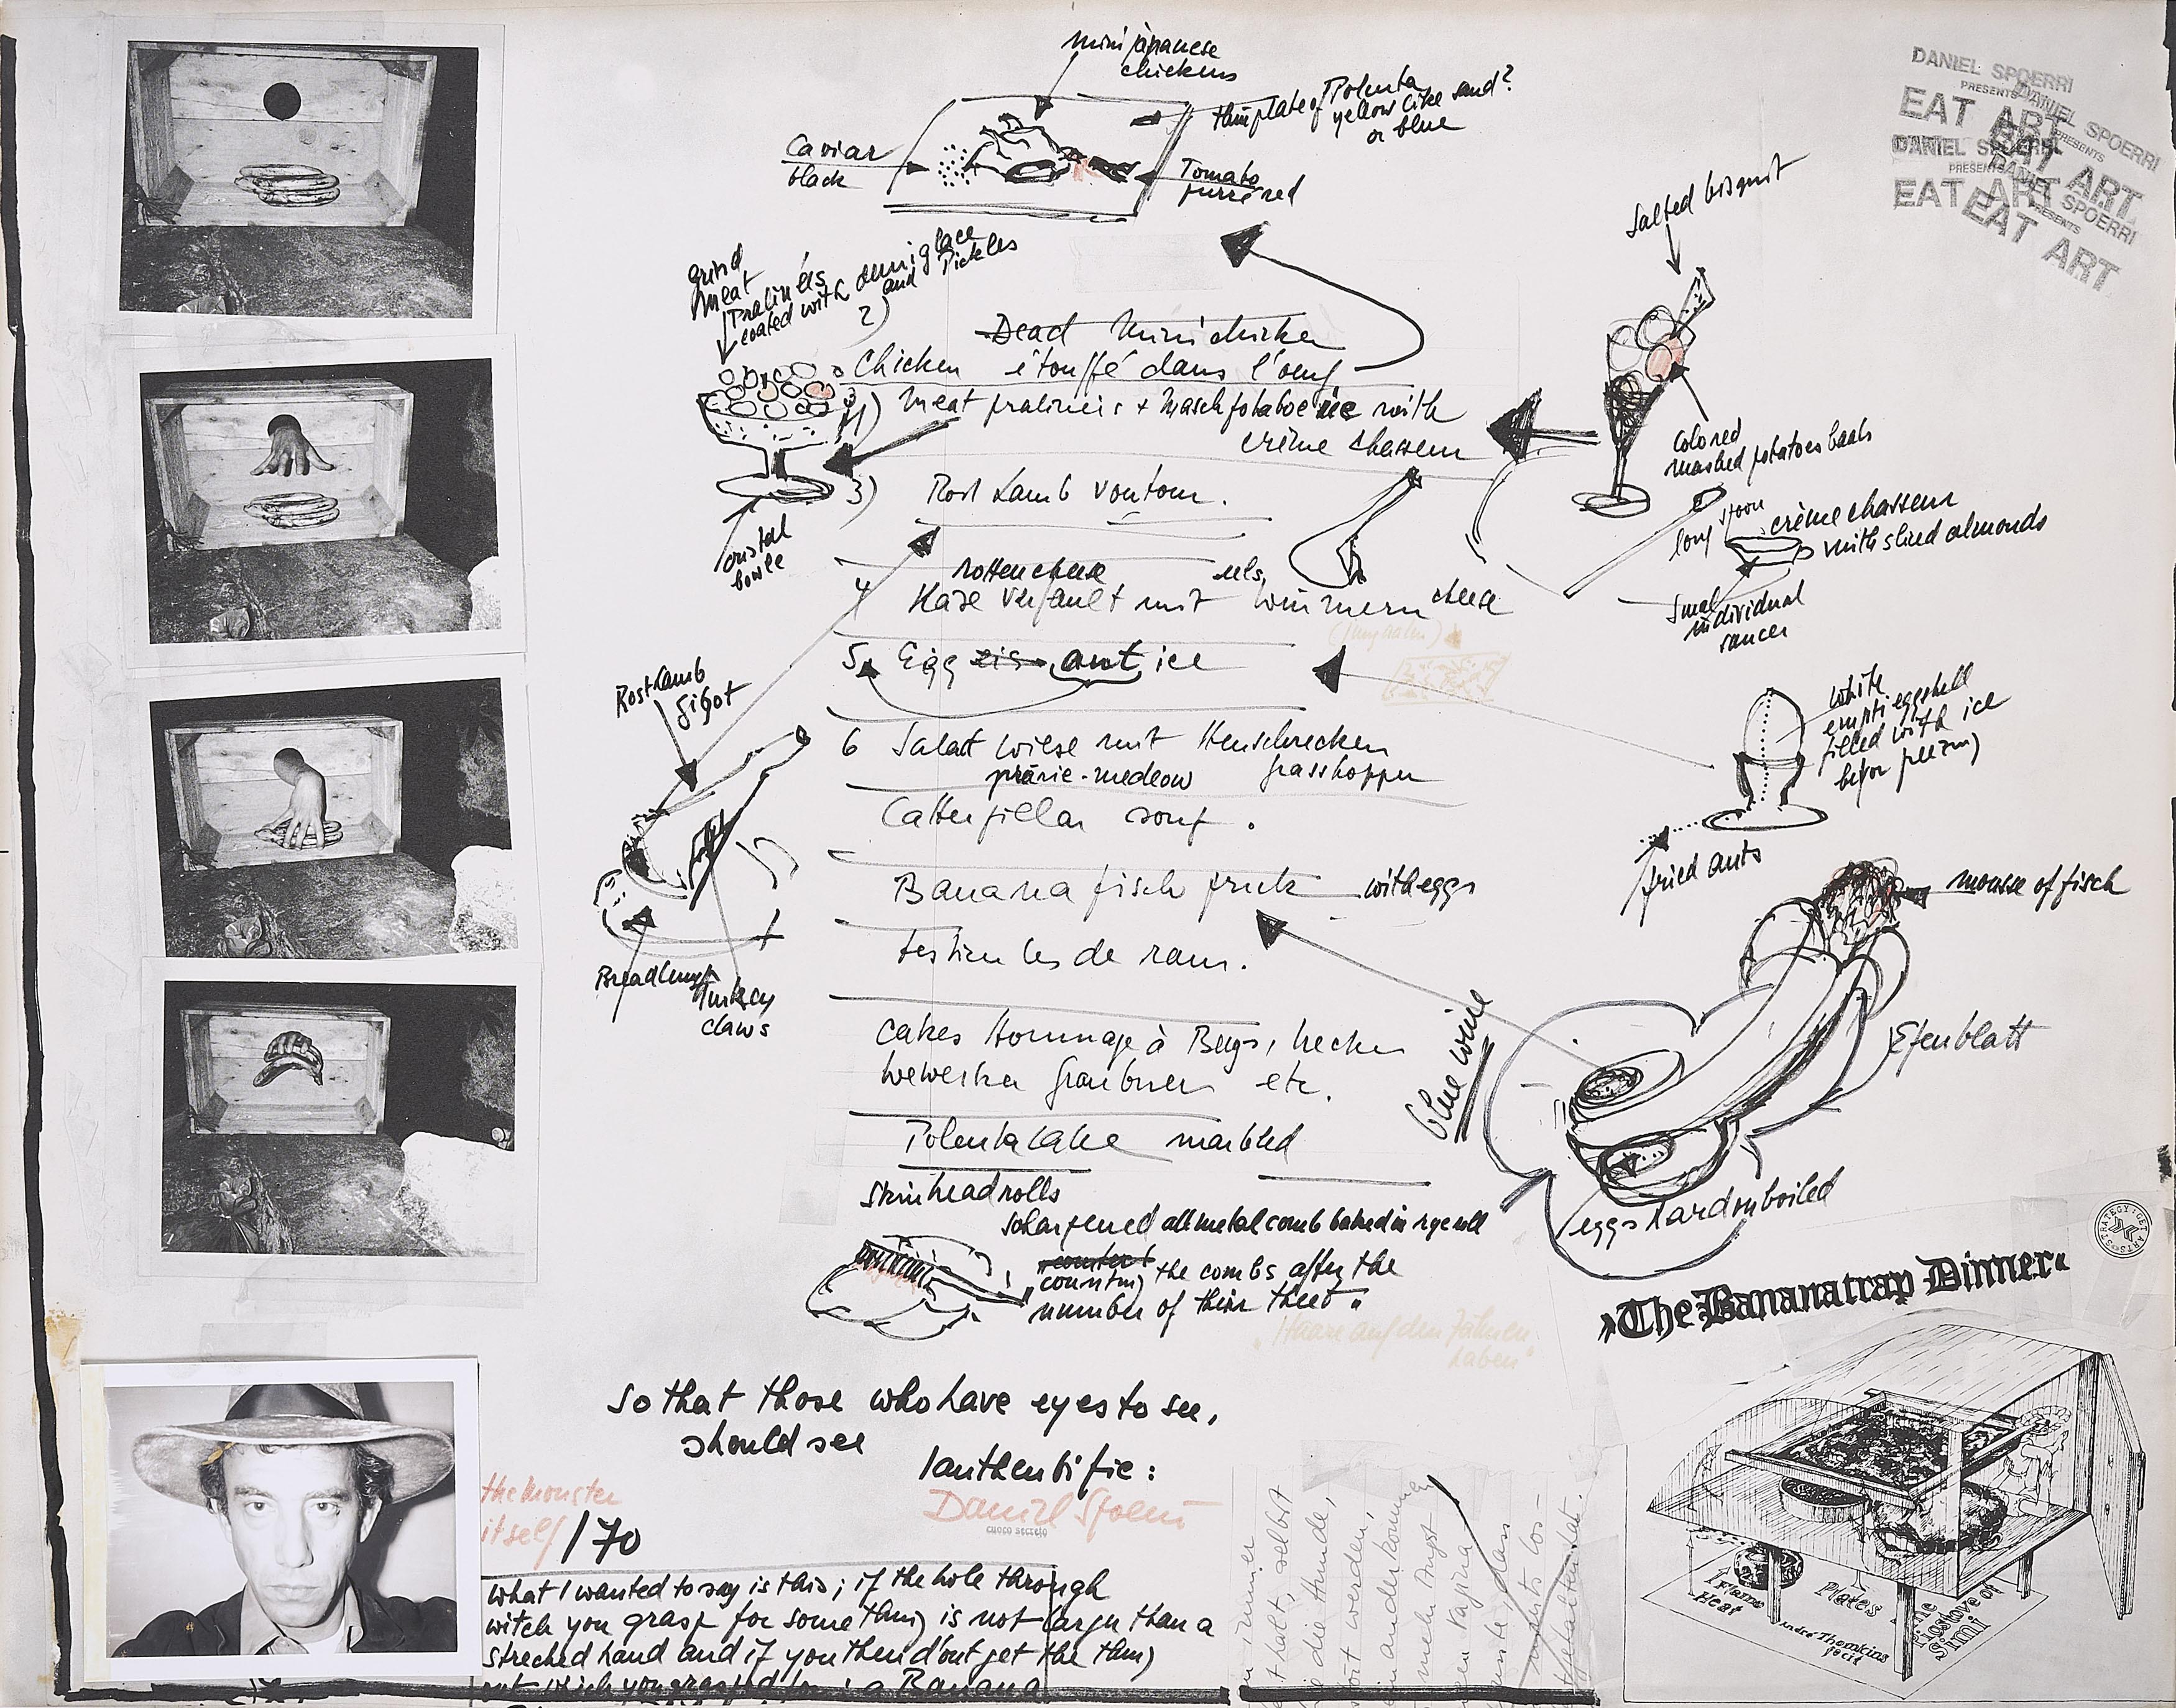 mini japanese
chickens
thin plate of Polenta
yellow like sand?
or blue
Caviar
black
Tomato
purré red
DANIEL SPOERRI
PRESENTS
EAT ART
DANIEL SPOERRI
PRESENTS
EAT ART
DANIEL SPOERRI
PRESENTS
EAT ART
SPOERRI
PRESENTS
EAT ART
Salted bisquit
grind
meat
Pralinées
coated with demiglace
and Pickles
2)
Dead Mini chicken
Chicken étouffé dans l'oeuf
meat pralinées + maschpotatoe ice with
crème chasseur
cristal
bowle
3) Rost Lamb vontour.
Colored
mashed potatoes baals
long spoon
crème chasseur
with slised almonds
Smal
individual
saucer
rotten cheese
4 Käse verfault mit Würmern cheese
5 Egg eis ant ice
Rost Lamb
Gigot
White
empti eggshell
filled with ice
befor freezing
fried ants
6 Salatt Wiese mit Heuschrecken
prärie-medeow grasshopper
Catterpillar soup.
Banana fisch prick with eggs
mousse of fisch
testicules de ram.
Bread lump
Turkey
claws
Cakes Hommage à Beys, hecker
wewerka Graubner etc.
blue wine
Efeublatt
Polenta cake marbled
Skinhead rolls
scharpened all metal comb baked in rye roll
"counting the combs after the
number of their theet"
"Haare auf den Zähnen
haben"
eggs hard on boiled
STRATEGY: GET ARTS
»The Bananatrap Dinner«
So that those who have eyes to see,
should see
I authentifie:
Daniel Spoerri
cuoco secreto
the monster
itself /70
What I wanted to say is this; if the hole through
witch you grasp for something is not larger than a
streched hand and if you then d'ont get the thing
out which you grasped for: a Banana
1 Flame
Heat
Plates
The
Pigstove of
Simi
André Thomkins
fecit